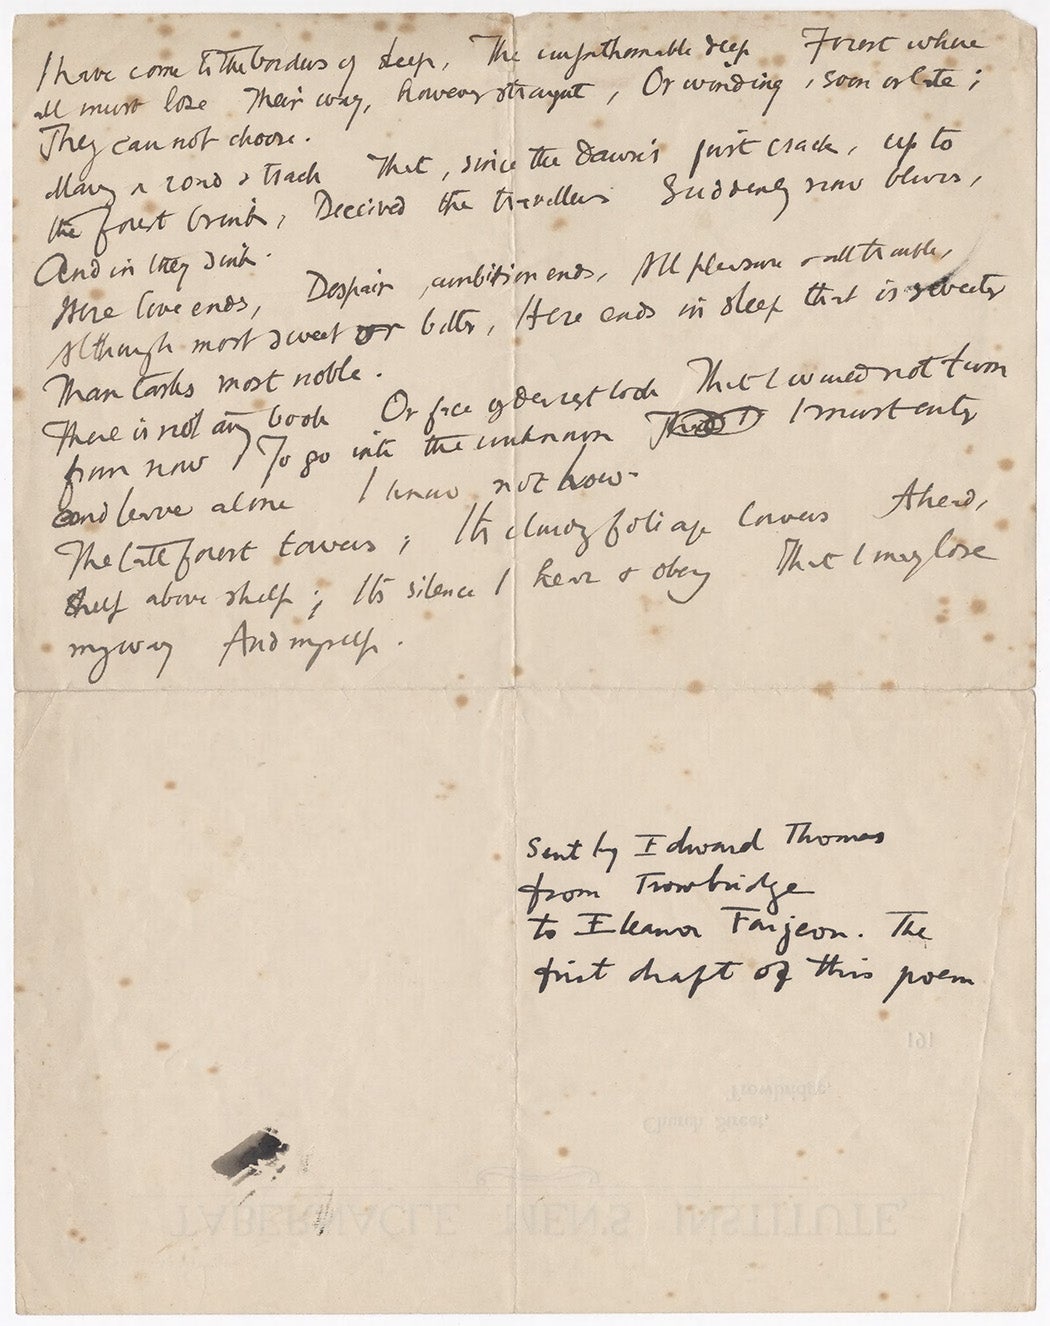 I have come to the borders of sleep, The unfathomable deep Forest where
all must lose Their way, however straight, Or winding, soon or late;
They can not choose.
Many a road & track That, since the dawn's first crack, up to
the forest brink, Deceived the travellers Suddenly now blurs,
And in they sink.
Here love ends, Despair, ambition ends, All pleasure & all trouble,
Although most sweet or bitter, Here ends in sleep that is sweeter
Than tasks most noble.
There is not any book Or face of dearest look That I would not turn
from now To go into the unknown I must enter
and leave alone I know not how.
The tall forest towers; Its cloudy foliage lowers Ahead,
Shelf above shelf; Its silence I hear & obey That I may lose
my way And myself.
Sent by Edward Thomas
from Trowbridge
to Eleanor Farjeon. The
first draft of this poem
191
Trowbridge,
Church Street,
TABERNACLE MEN'S INSTITUTE,